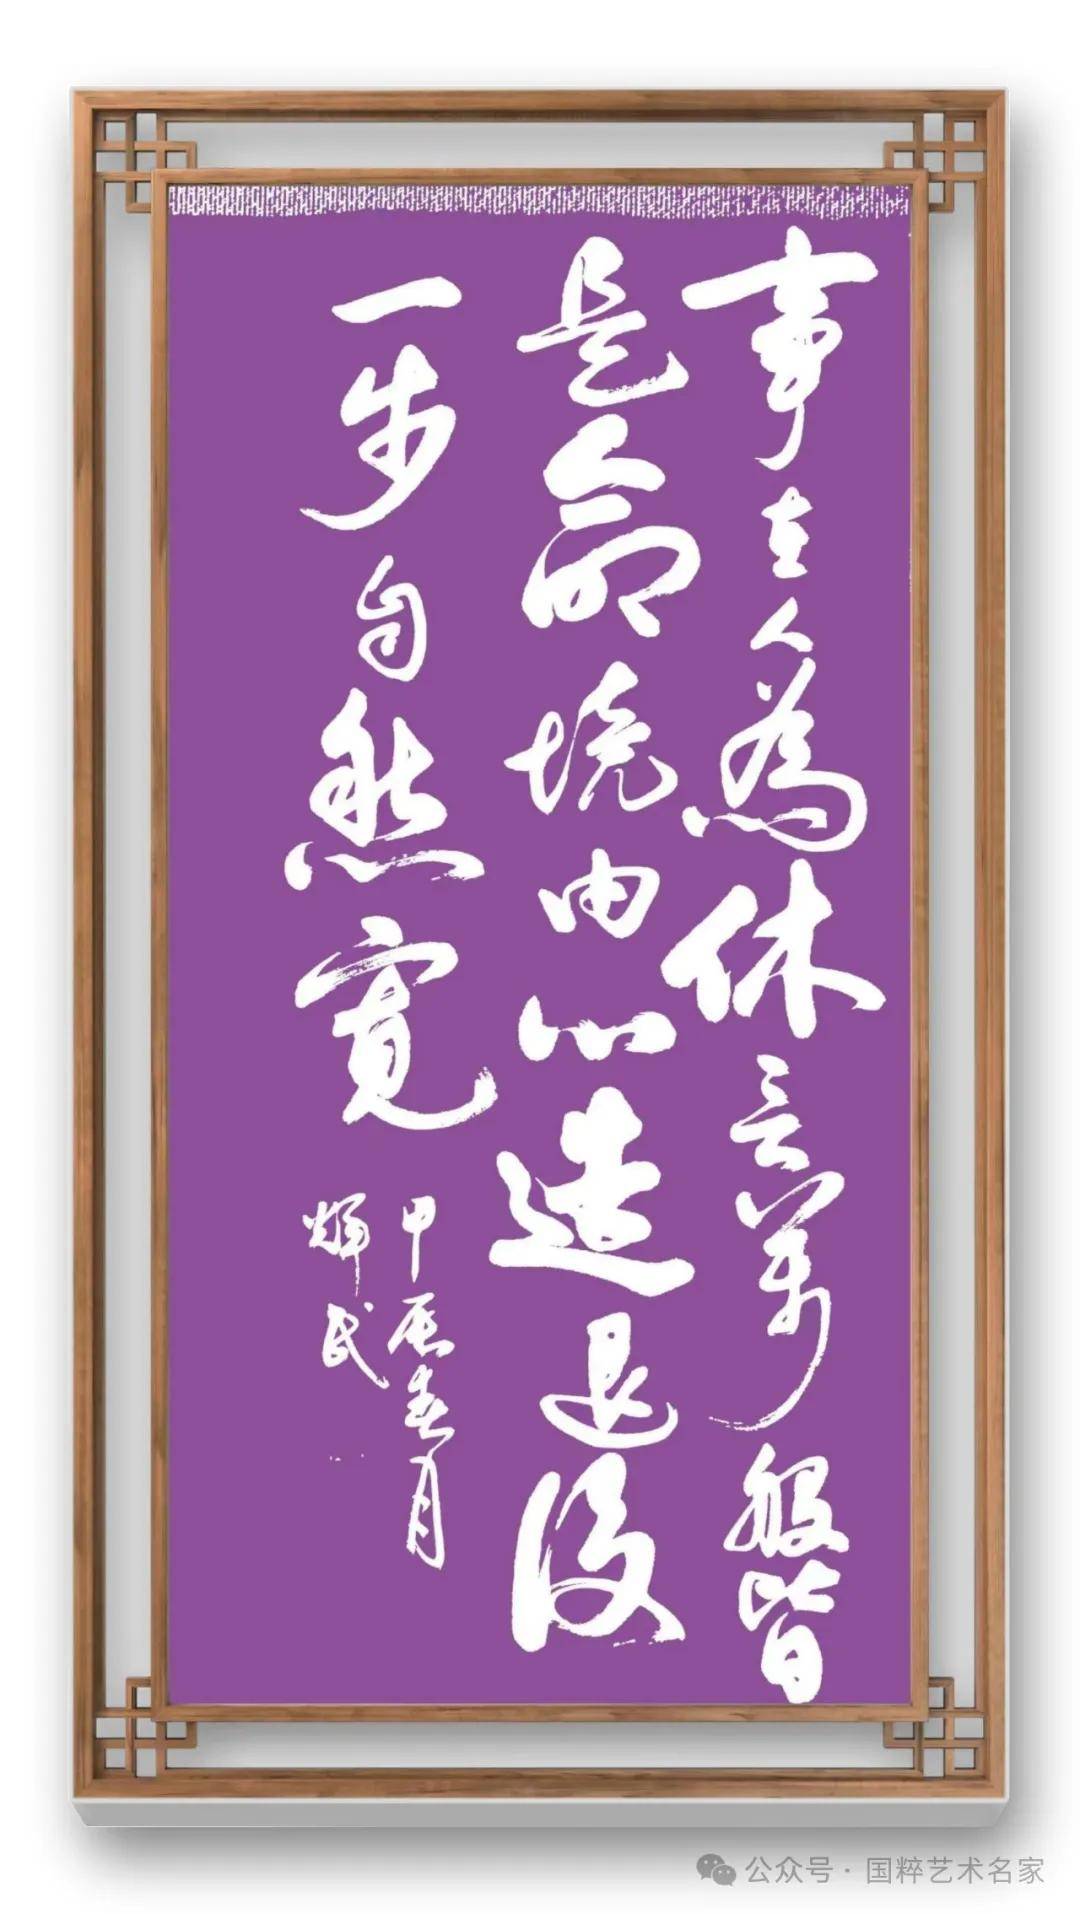 事在人為休言萬般皆
是命境由心造退後
一步自然寬
甲辰春月
輝民
公众号 · 国粹艺术名家